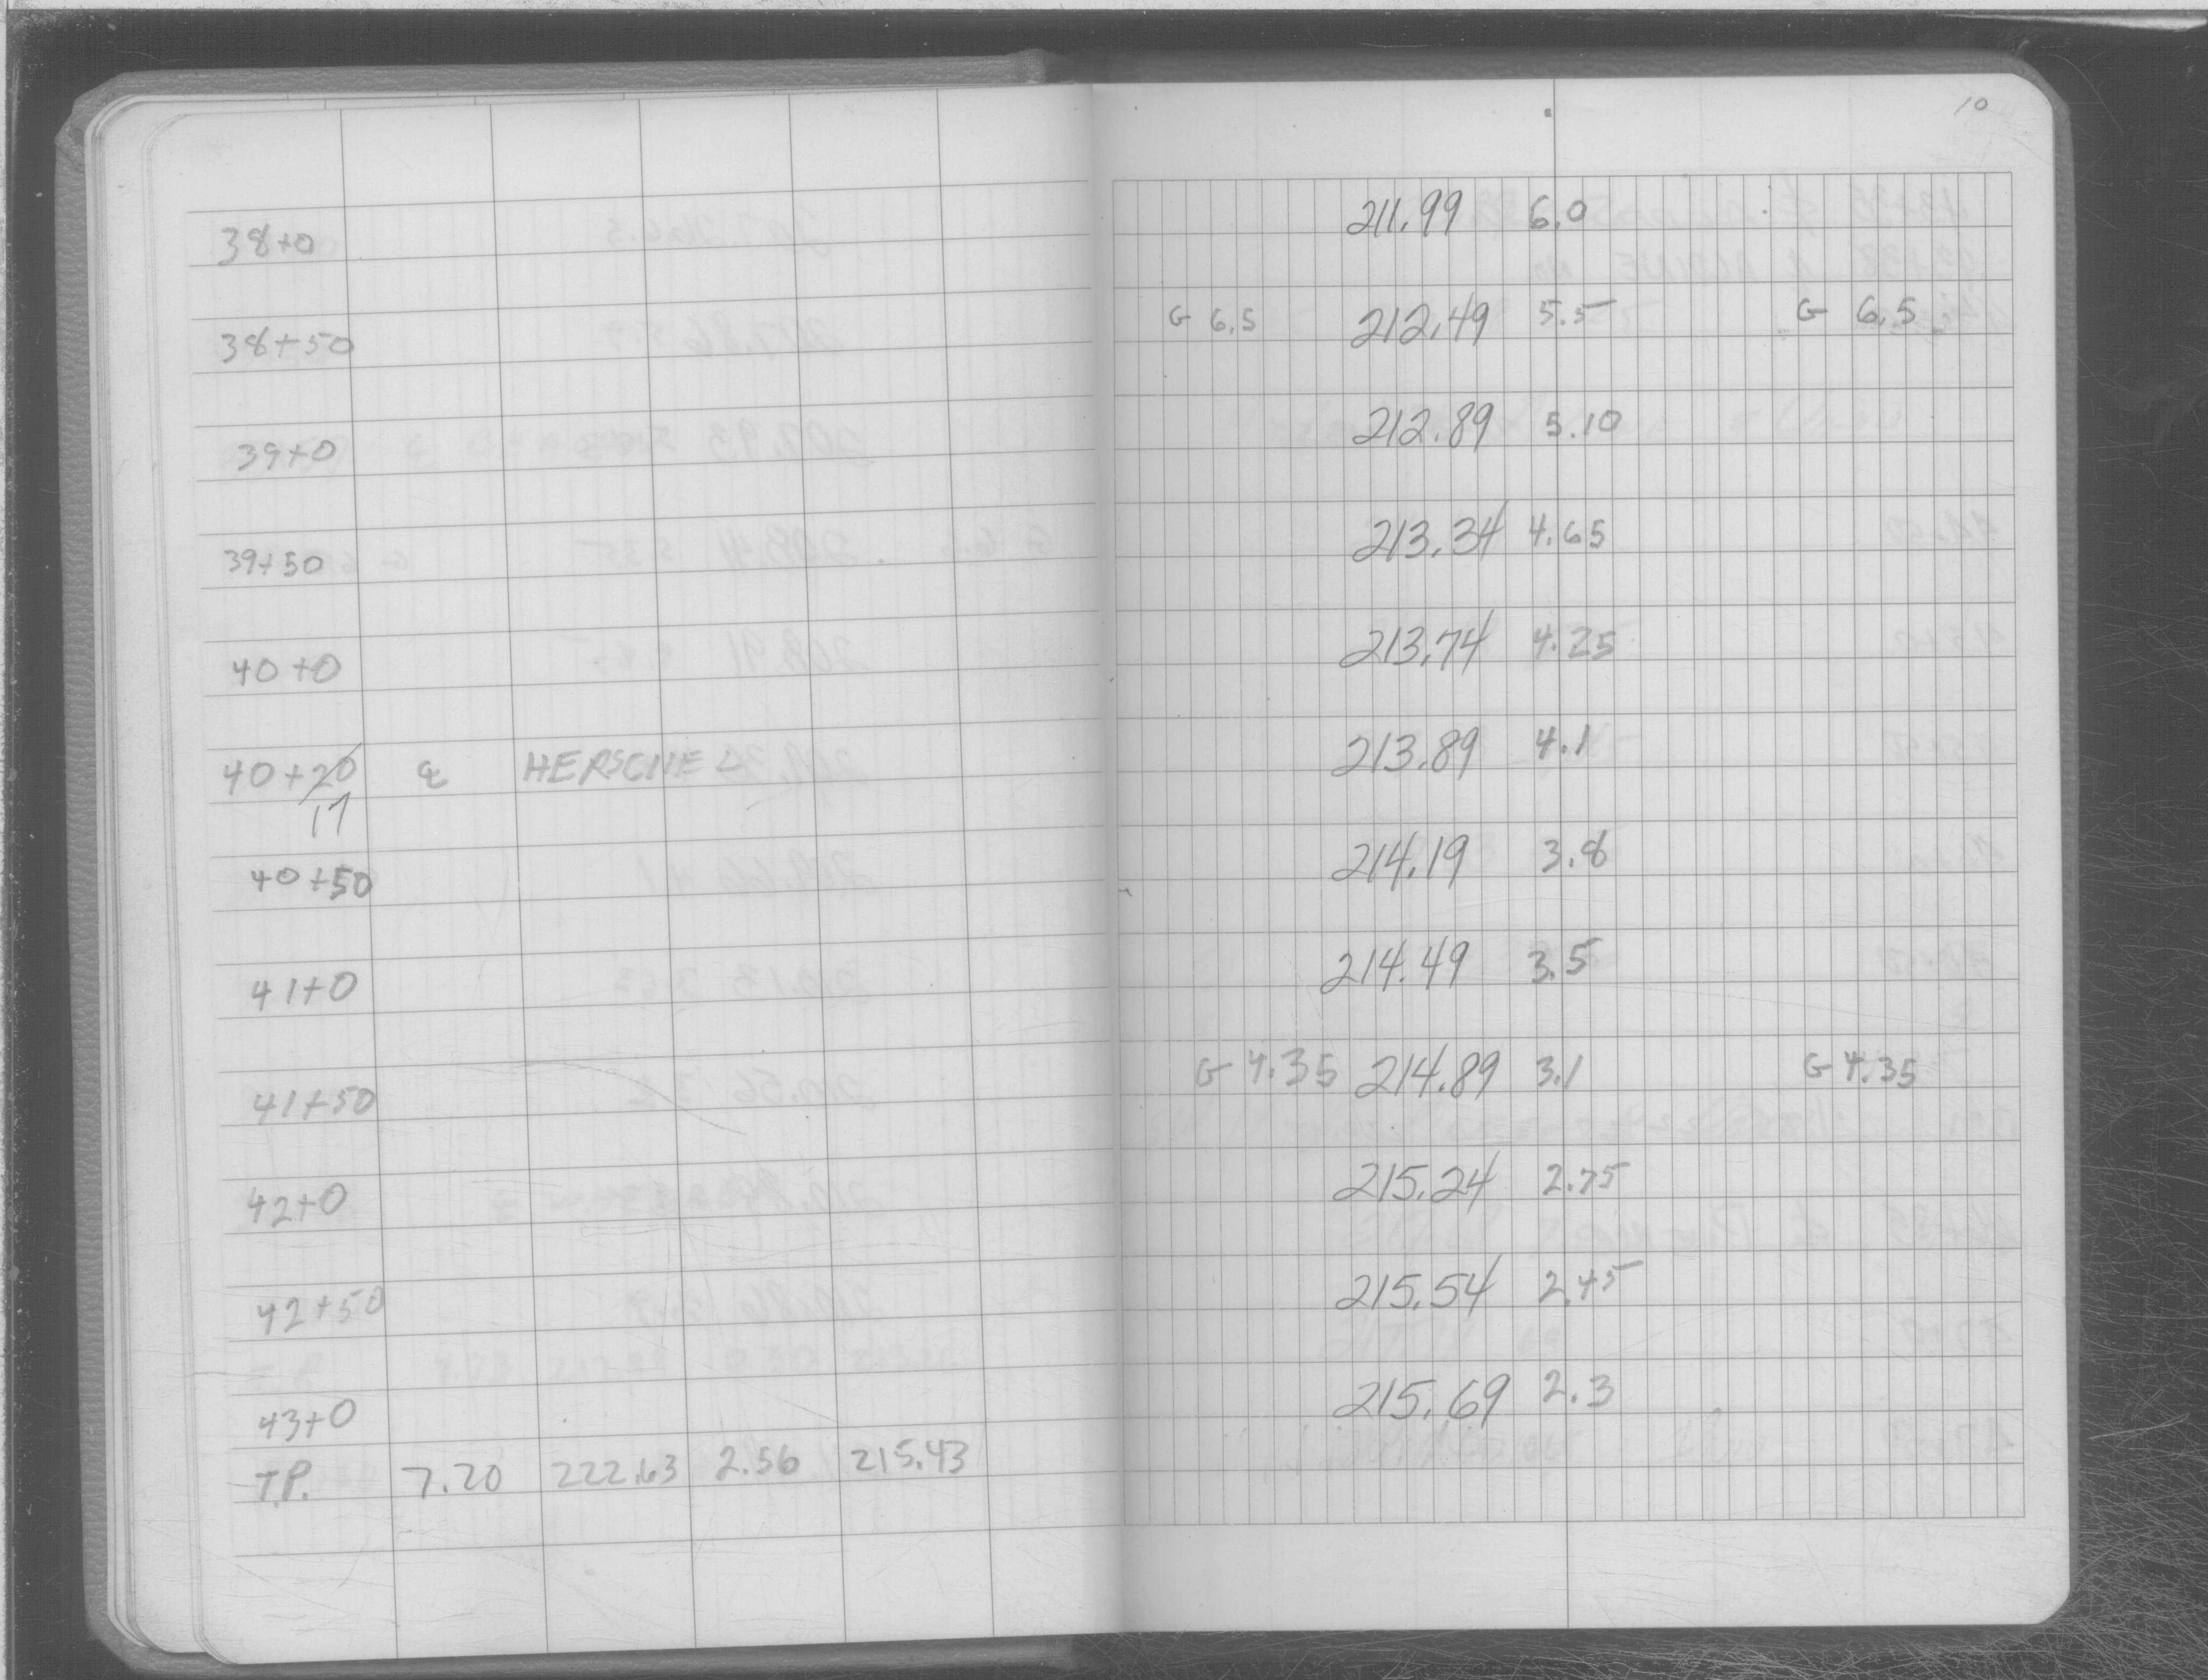 10
38+0 211.99 6.0
38+50 G 6.5 212.49 5.5 G 6.5
39+0 212.89 5.10
39+50 213.34 4.65
40+0 213.74 4.25
40+20 ℄ HERSCHEL 213.89 4.1
17
40+50 214.19 3.8
41+0 214.49 3.5
41+50 G 4.35 214.89 3.1 G 4.35
42+0 215.24 2.75
42+50 215.54 2.45
43+0 215.69 2.3
T.P. 7.20 222.63 2.56 215.43